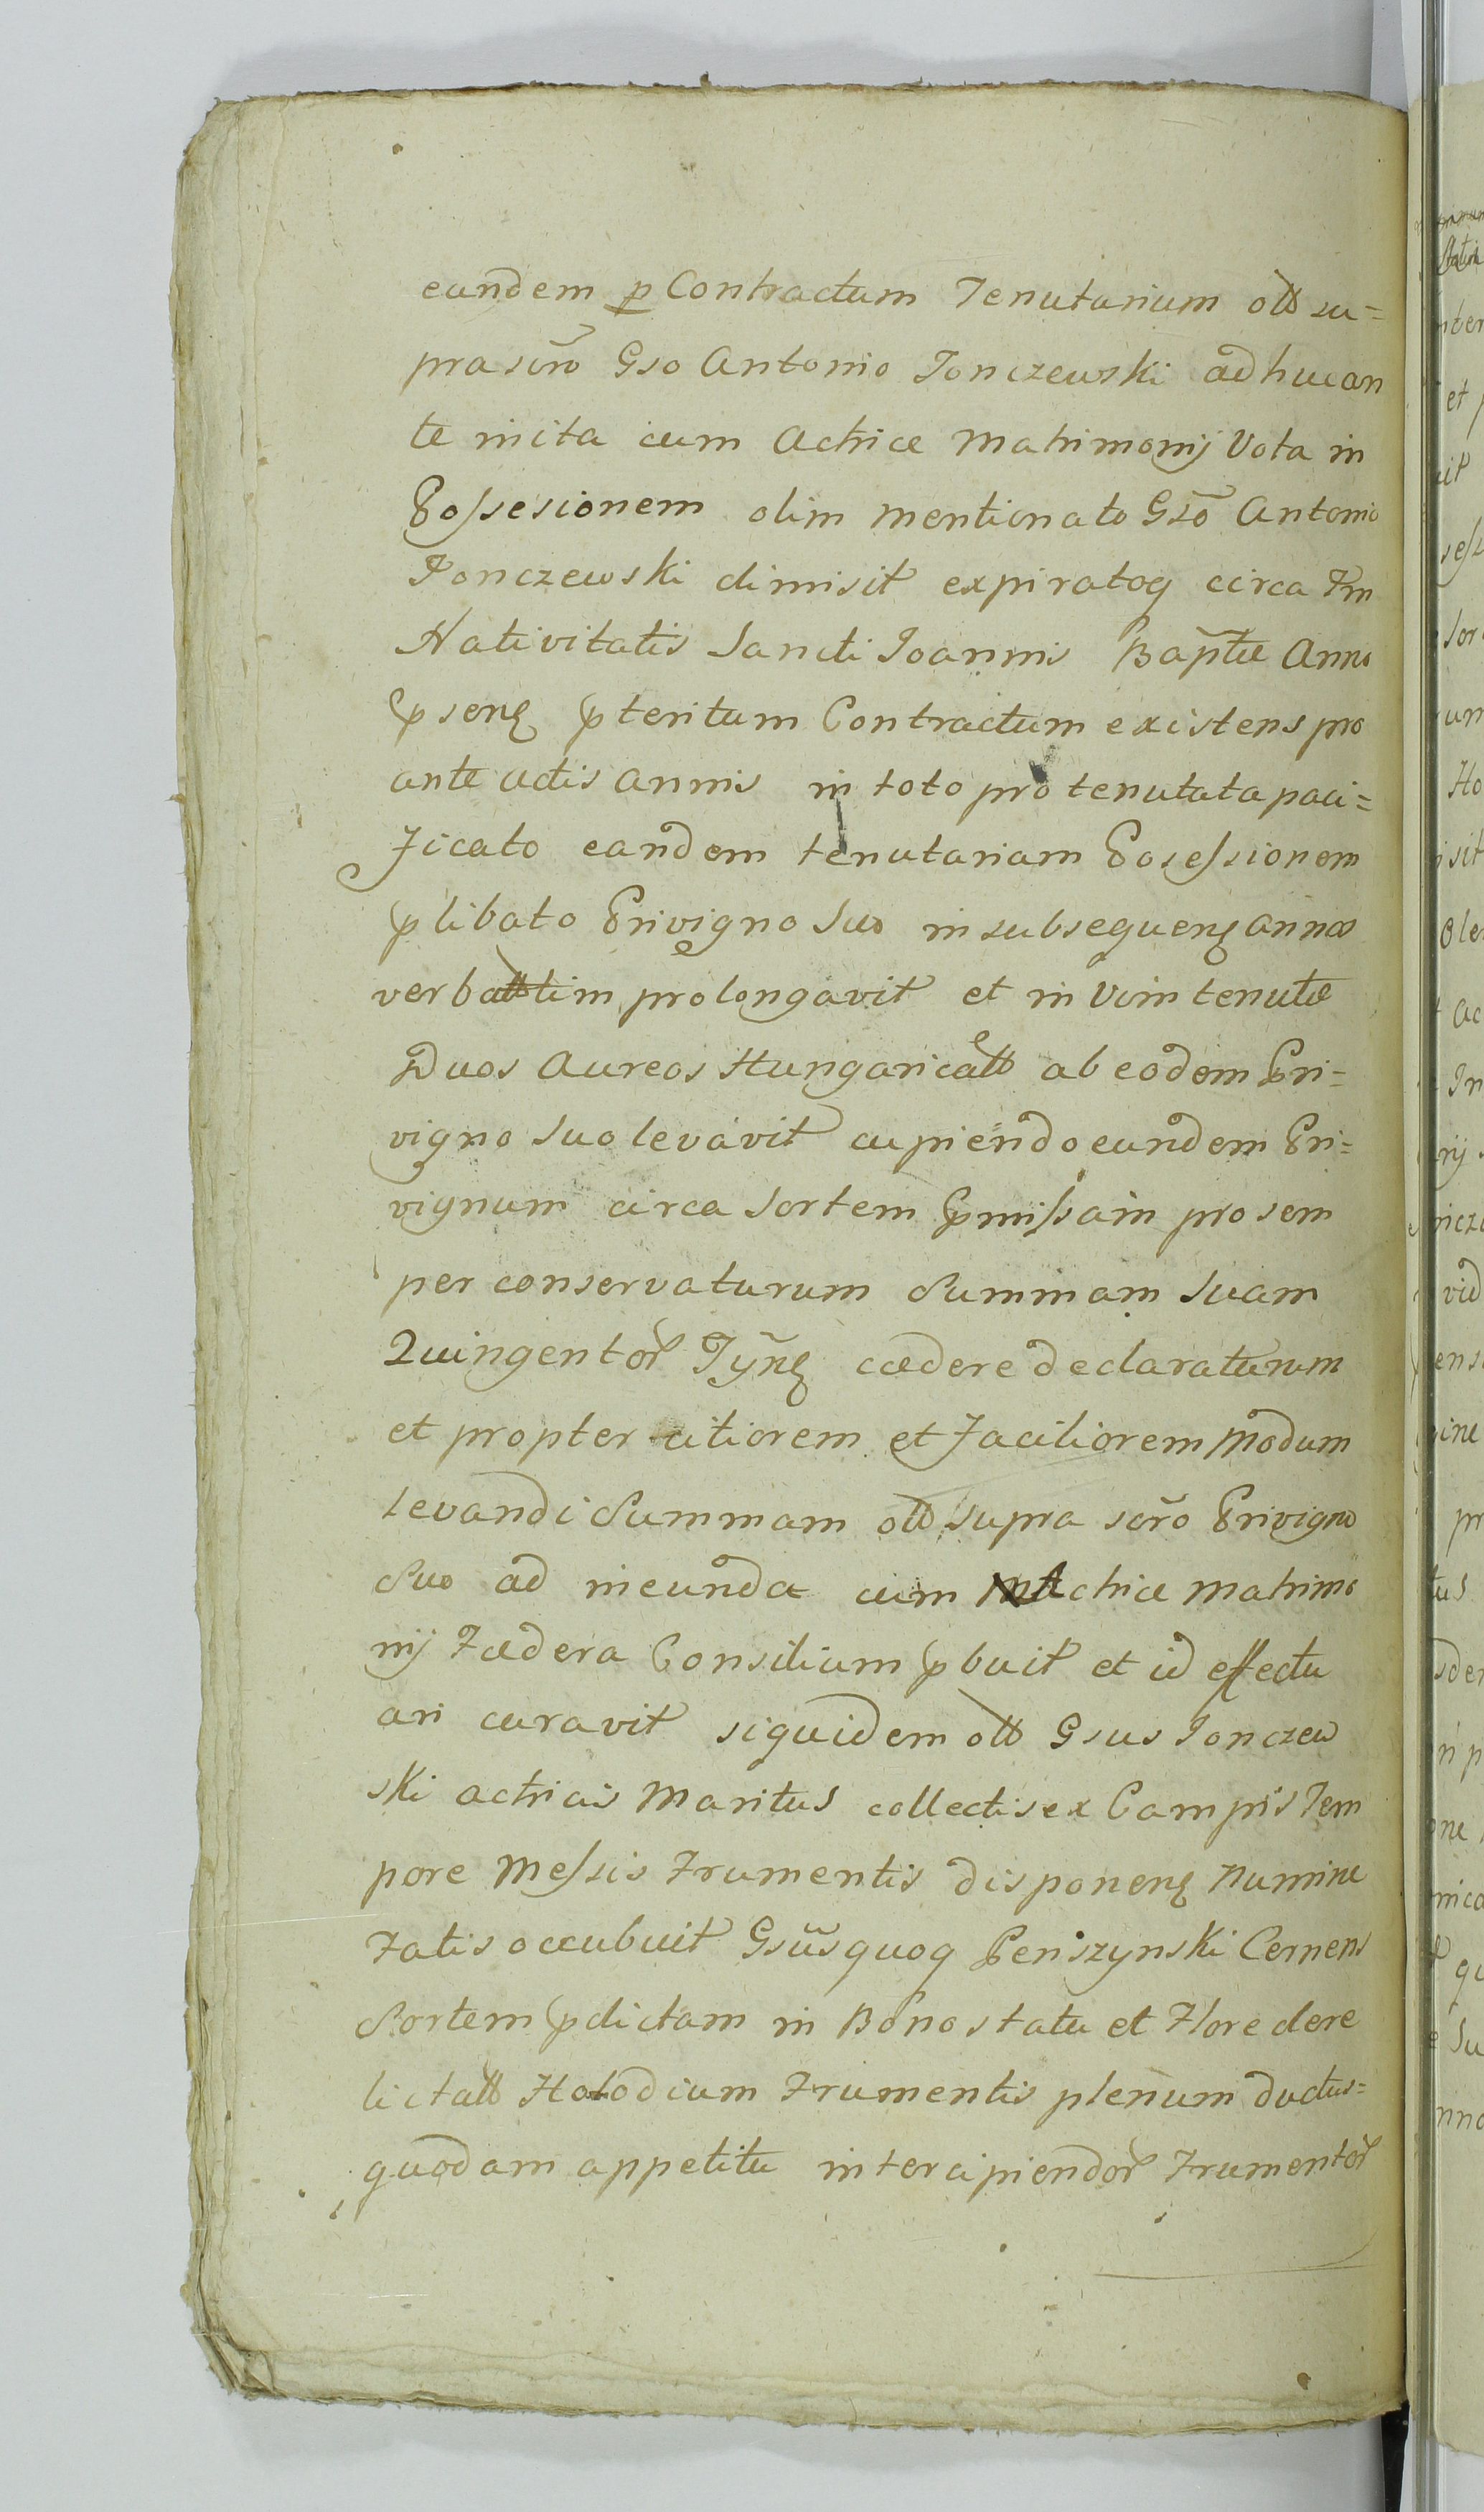 eandem p Contractum Tenutarium olb su=
prascrō Gso Antonio Jonczewski adhuc an
te inita cum Actrice Matrimonij Vota in
Possesionem olim mentionato Gsō Antonio
Jonczewski dimisit expiratoq circa Fm
Nativitatis Sancti Joannis Bap̄tæ Anno
p senȩ p teritum Contractum existens pro
ante actis annis in toto pro tenutata paci=
ficato eandem tenutariam Posessionem
p libato Privigno Suo in subsequenȩ annos
verbattim prolongavit et in Vim tenutæ
Duos Aureos Hungaricalb ab eodem Pri=
vigno Suo levavit cupiendo eundem Pri=
vignum circa Sortem pmissam pro sem
per conservaturum Summam Suam
Quingentor Tÿnȩ cædere declaraturum
et propter citiorem et faciliorem modum
levandi Summam olb supra scro Privigno
Suo ad ineunda cum Actrice matrimo
nij Fædera Consilium p buit et id effectu
ari curavit siquidem olb Gsus Jonczew
ski actricis Maritus collectis ex Campis Tem
pore Messis Frumentis disponenȩ Numine
Fatis occubuit Gsūs quoq Peniszynski Cernens
Sortem pdictam in Bono statu et Flore dere
lictalb Holodium Frumentis plenum ductus=
quodam appetitu intercipiendor Frumentor